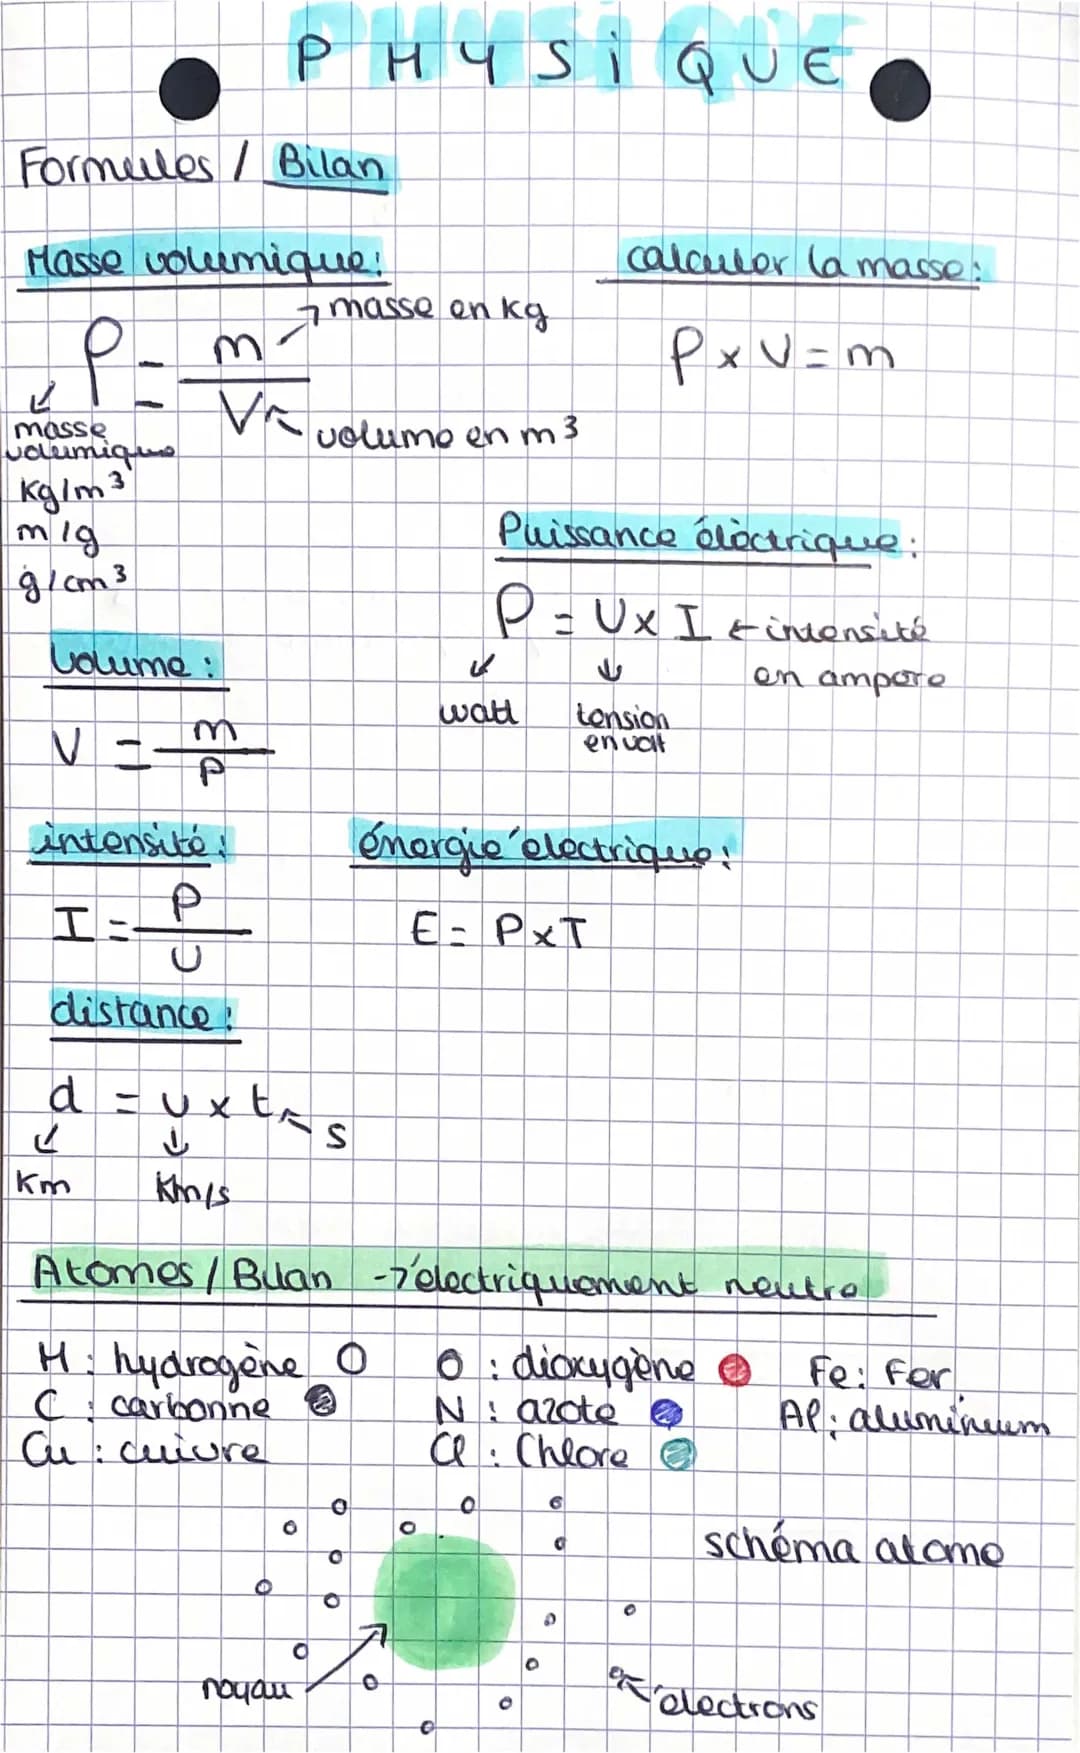 PHYSiQUE
Formules / Bilan
Masse volumique:
ρ = m / V
masse en kg
volume en m³
masse
volumique
kg/m³
m/g
g/cm³
calculer la masse:
ρ x V = m
Puissance éléctrique:
P = U x I ← intensité
en ampere
watt
tension
en volt
volume:
V = m / ρ
intensité:
I = P / U
énergie électrique:
E = P x T
distance:
d = v x t
s
Km
Km/s
Atomes / Bilan → électriquement neutre
H : hydrogène
O : dioxygène
Fe : Fer
C : carbonne
N : azote
Al : aluminium
Cu : cuivre
Cl : Chlore
schéma atome
noyau
électrons